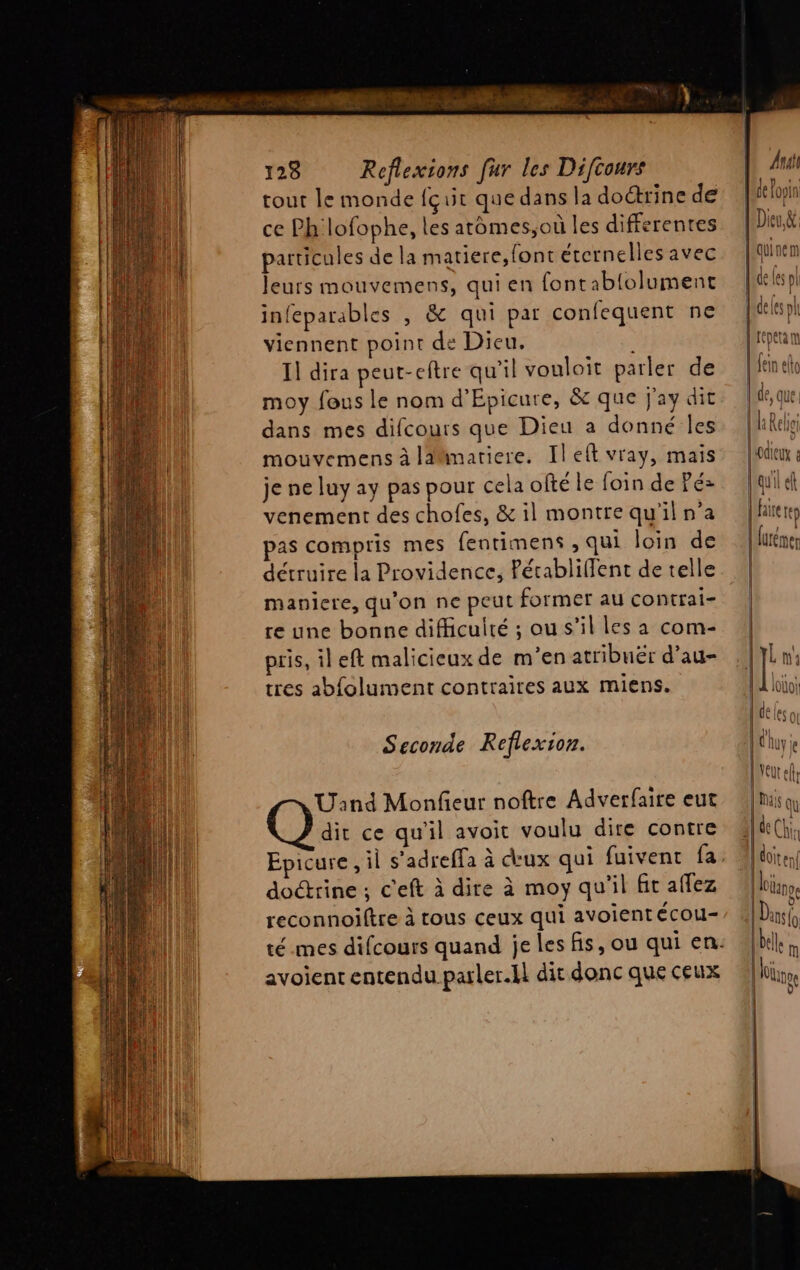 128 Reflexions ſur les Diſcours
tout le monde ſçait que dans la doctrine de
ce Philoſophe, les atômes, où les differentes
particules de la matiere, ſont éternelles avec
leurs mouvemens, qui en ſont abſolument
inſeparables , & qui par conſequent ne
viennent point de Dieu.
Il dira peut-eſtre qu'il vouloit parler de
moy ſous le nom d'Epicure, & que j'ay dit
dans mes diſcours que Dieu a donné les
mouvemens à la matiere. Il eſt vray, mais
je ne luy ay pas pour cela oſté le ſoin de l'é-
venement des choſes, & il montre qu'il n'a
pas compris mes ſentimens , qui loin de
détruire la Providence, l'établiſſent de telle
maniere, qu'on ne peut former au contrai-
re une bonne difficulté ; ou s'il les a com-
pris, il eſt malicieux de m'en atribuër d'au-
tres abſolument contraires aux miens.
Seconde Reflexion.
QUand Monſieur noſtre Adverſaire eut
dit ce qu'il avoit voulu dire contre
Epicure , il s'adreſſa à ceux qui ſuivent ſa
doctrine ; c'eſt à dire à moy qu'il fit aſſez
reconnoiſtre à tous ceux qui avoient écou-
té mes diſcours quand je les fis, ou qui en
avoient entendu parler. Il dit donc que ceux
de l'opin
Dieu, &
qui ne m
de ſes pl
de ſes pl
de, que
la Religi
odieux
qu'il eſt
faire rep
de ſes
d'huy je
mais qu
de Chi
belle m